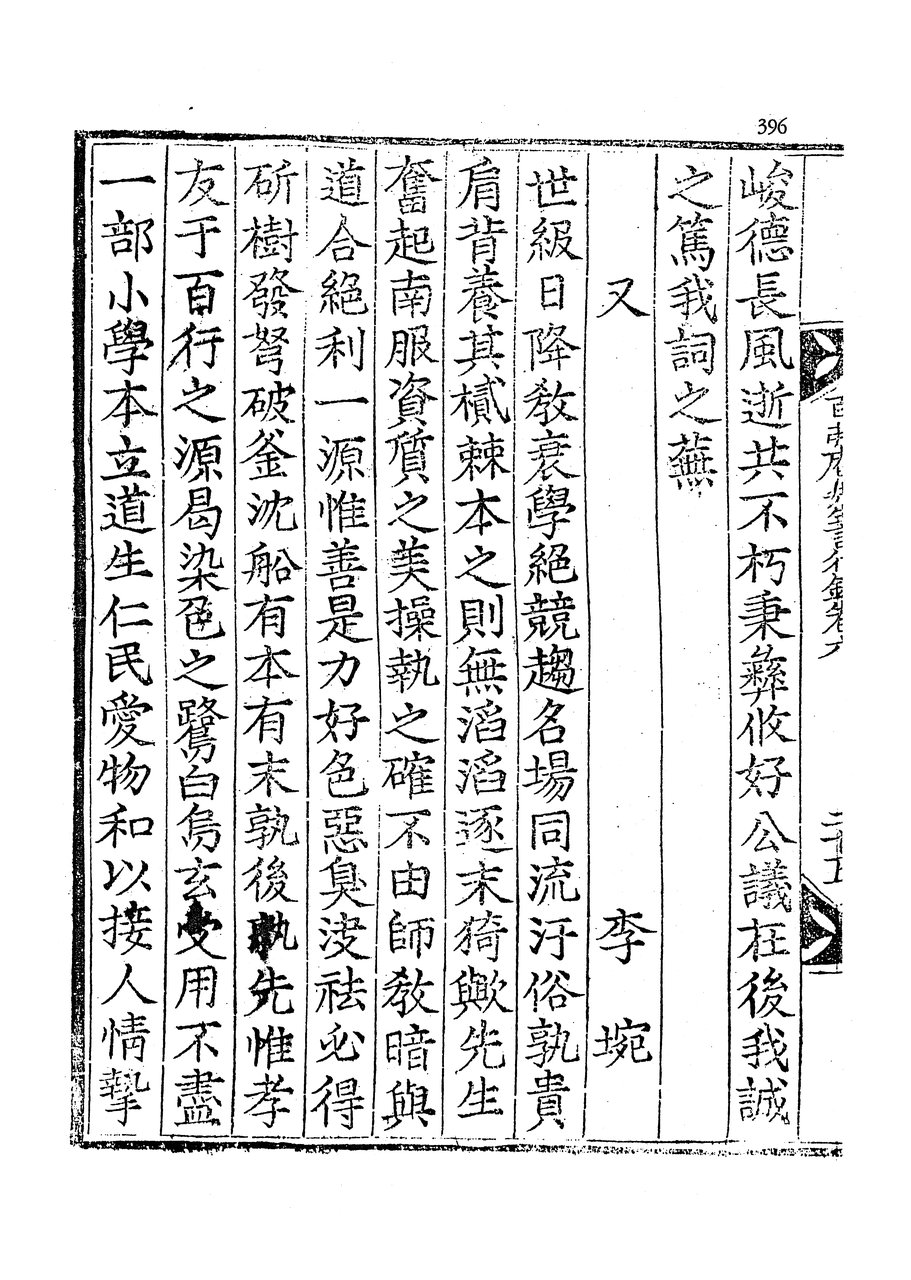 396
峻德長風逝共不朽秉彝攸好公議在後我誠
之篤我詞之蕪
又 李埦
世級日降敎衰學絕競趨名場同流汙俗孰貴
肩背養其樲棘本之則無滔滔逐末猗歟先生
奮起南服資質之美操執之確不由師敎暗與
道合絕利一源惟善是力好色惡臭決祛必得
斫樹發弩破釜沈船有本有末孰後孰先惟孝
友于百行之源曷染色之鷺白烏玄受用不盡
一部小學本立道生仁民愛物和以接人情摯
二十五